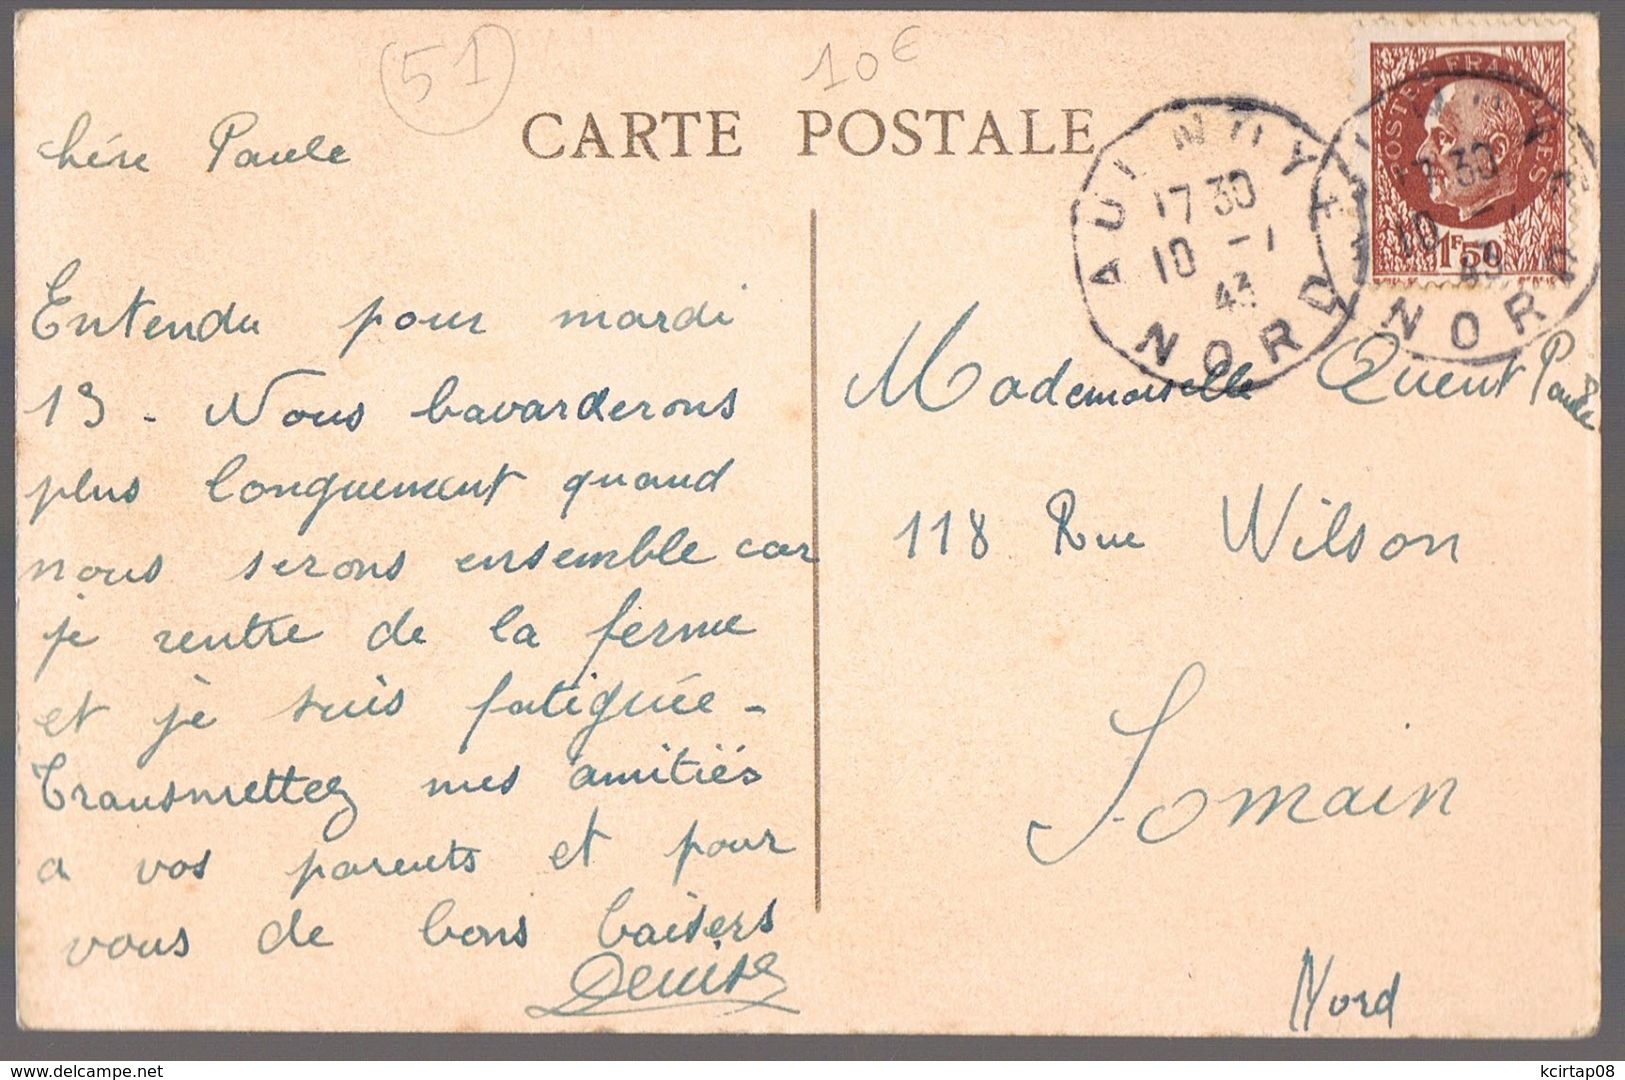 51
10€
CARTE POSTALE
chére Paule
Entendu pour mardi
13 - Nous bavarderons
plus longuement quand
nous serons ensemble car
je rentre de la ferme
et je suis fatiguée -
Transmettez mes amitiés
a vos parents et pour
vous de bons baisers
Denise
POSTES FRANÇAISES
1F50
17 30
10 - 1
43
NORD
17 30
10 - 1
43
NORD
Mademoiselle Quent Paule
118 Rue Wilson
Somain
Nord
delcampe.net
kcirtap08